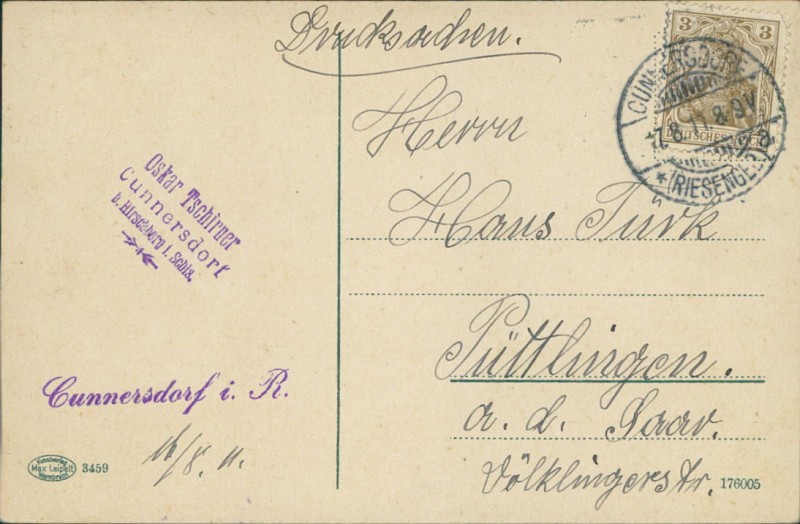 Drucksachen.
3 3
CUNNERSDORF
8-9V
DEUTSCHES REICH
* (RIESENGEB.) a
Herrn
Hans Turk
Püttlingen.
a. d. Saar.
Völklingerstr.
176005
Oskar Tschirner
Cunnersdorf
b. Hirschberg i. Schls.
Cunnersdorf i. R.
16/8. 11.
Kunstverlag
Max Leipelt
Warmbrunn
3459